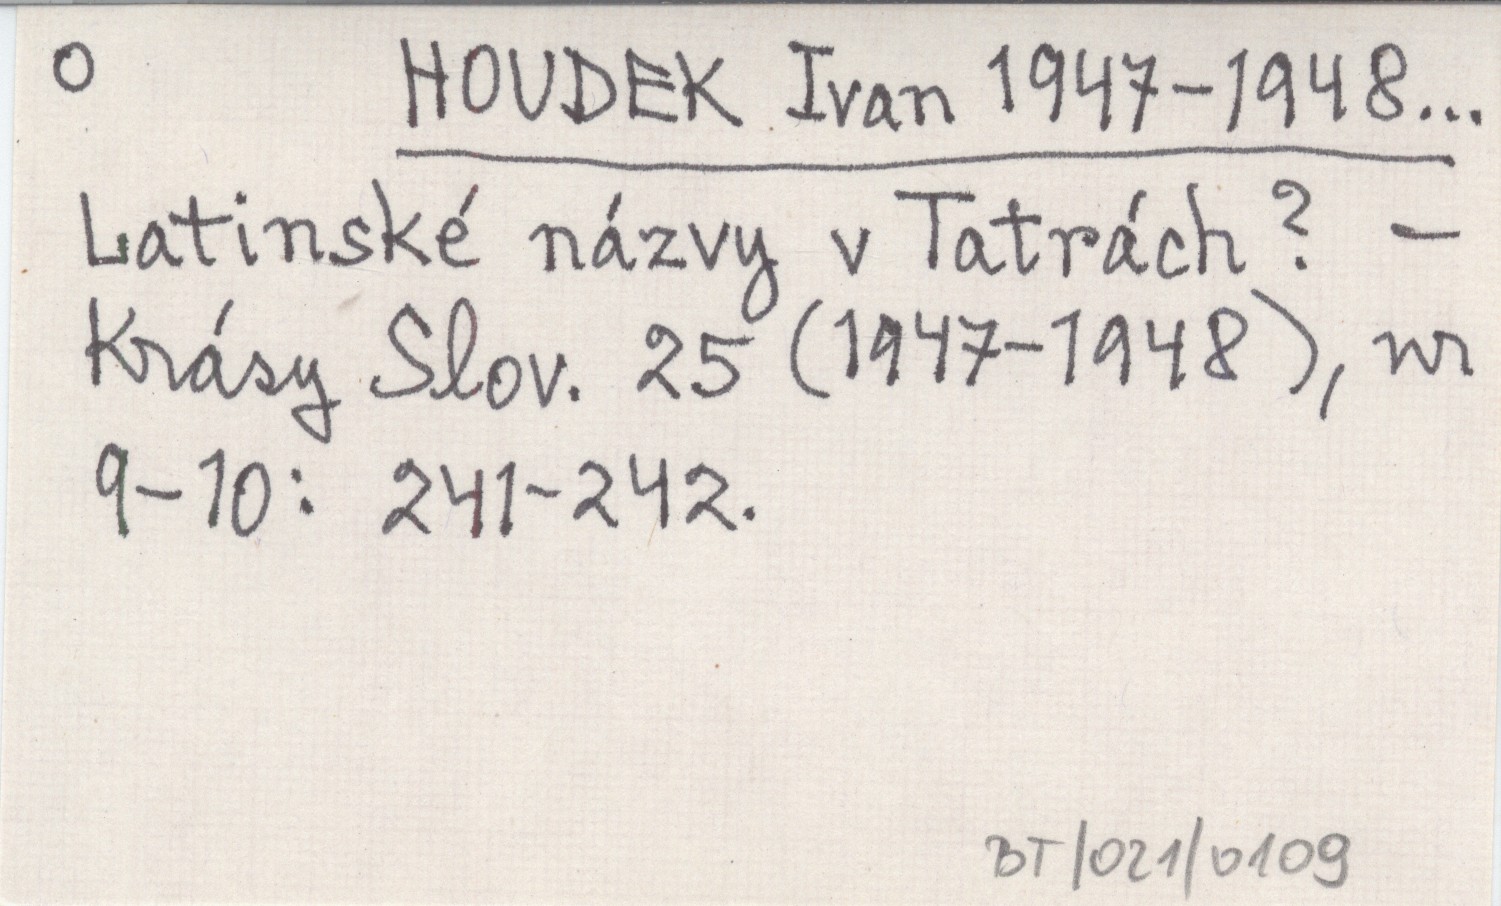 O HOUDEK Ivan 1947-1948...
Latinské názvy v Tatrách? -
Krásy Slov. 25 (1947-1948), nr
9-10: 241-242.
BT/021/0109